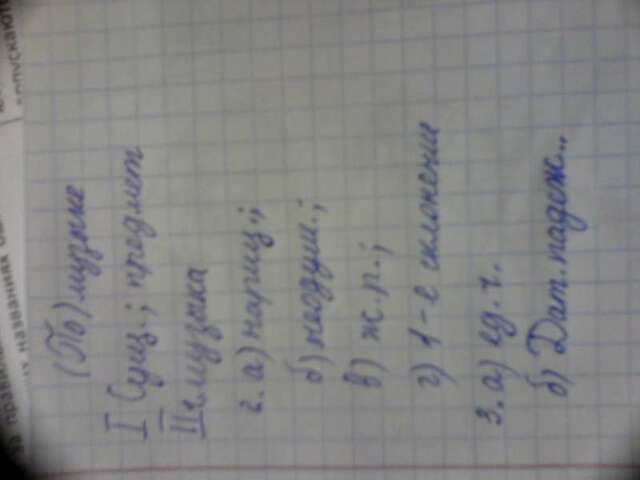 (По) музыке
I Сущ.; предмет
II 1. музыка
2. а) нариц.;
б) неодуш.;
в) ж.р.;
г) 1-е склонение
3. а) ед.ч.
б) Дат. падеж..
названиях